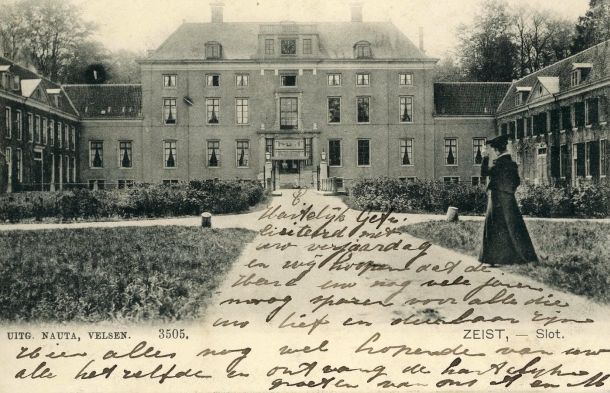 Hartelijk Gefe
liciteerd met
uw verjaardag
en wij hoopen dat de
Heer uw nog vele jaren
moog sparen voor alle die
ons lief en dierbaar zijn
UITG. NAUTA, VELSEN. 3505.
ZEIST, — Slot.
Hier alles nog wel hopende van uw
alle hetzelfde en ontvang de hartelijke
groeten van ons it en M